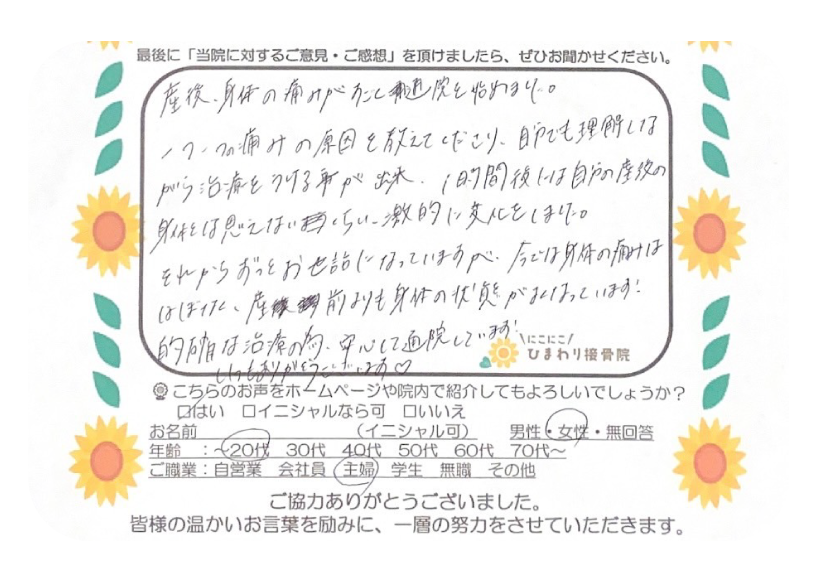 最後に「当院に対するご意見・ご感想」を頂けましたら、ぜひお聞かせください。
産後、身体の痛みがおこし通院を始めました。
一つ一つの痛みの原因を教えてくださり、自分でも理解しな
がら治療をうける事が出来、1時間後には自分の産後の
身体とは思えないくらい、激的に変化をしました。
それからずっとお世話になっていますが、今では身体の痛みは
ほぼなく、産前よりも身体の状態がよくなっています!
的確な治療の為、安心して通院しています!
いつもありがとうございます♡
にこにこ!
ひまわり接骨院
こちらのお声をホームページや院内で紹介してもよろしいでしょうか?
☑はい □イニシャルなら可 □いいえ
お名前 (イニシャル可) 男性・女性・無回答
年齢 :~20代 30代 40代 50代 60代 70代~
ご職業:自営業 会社員 主婦 学生 無職 その他
ご協力ありがとうございました。
皆様の温かいお言葉を励みに、一層の努力をさせていただきます。